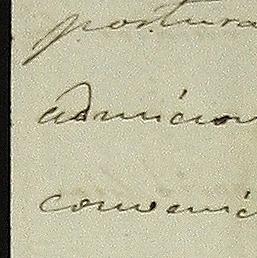 postura
admicion
convenie